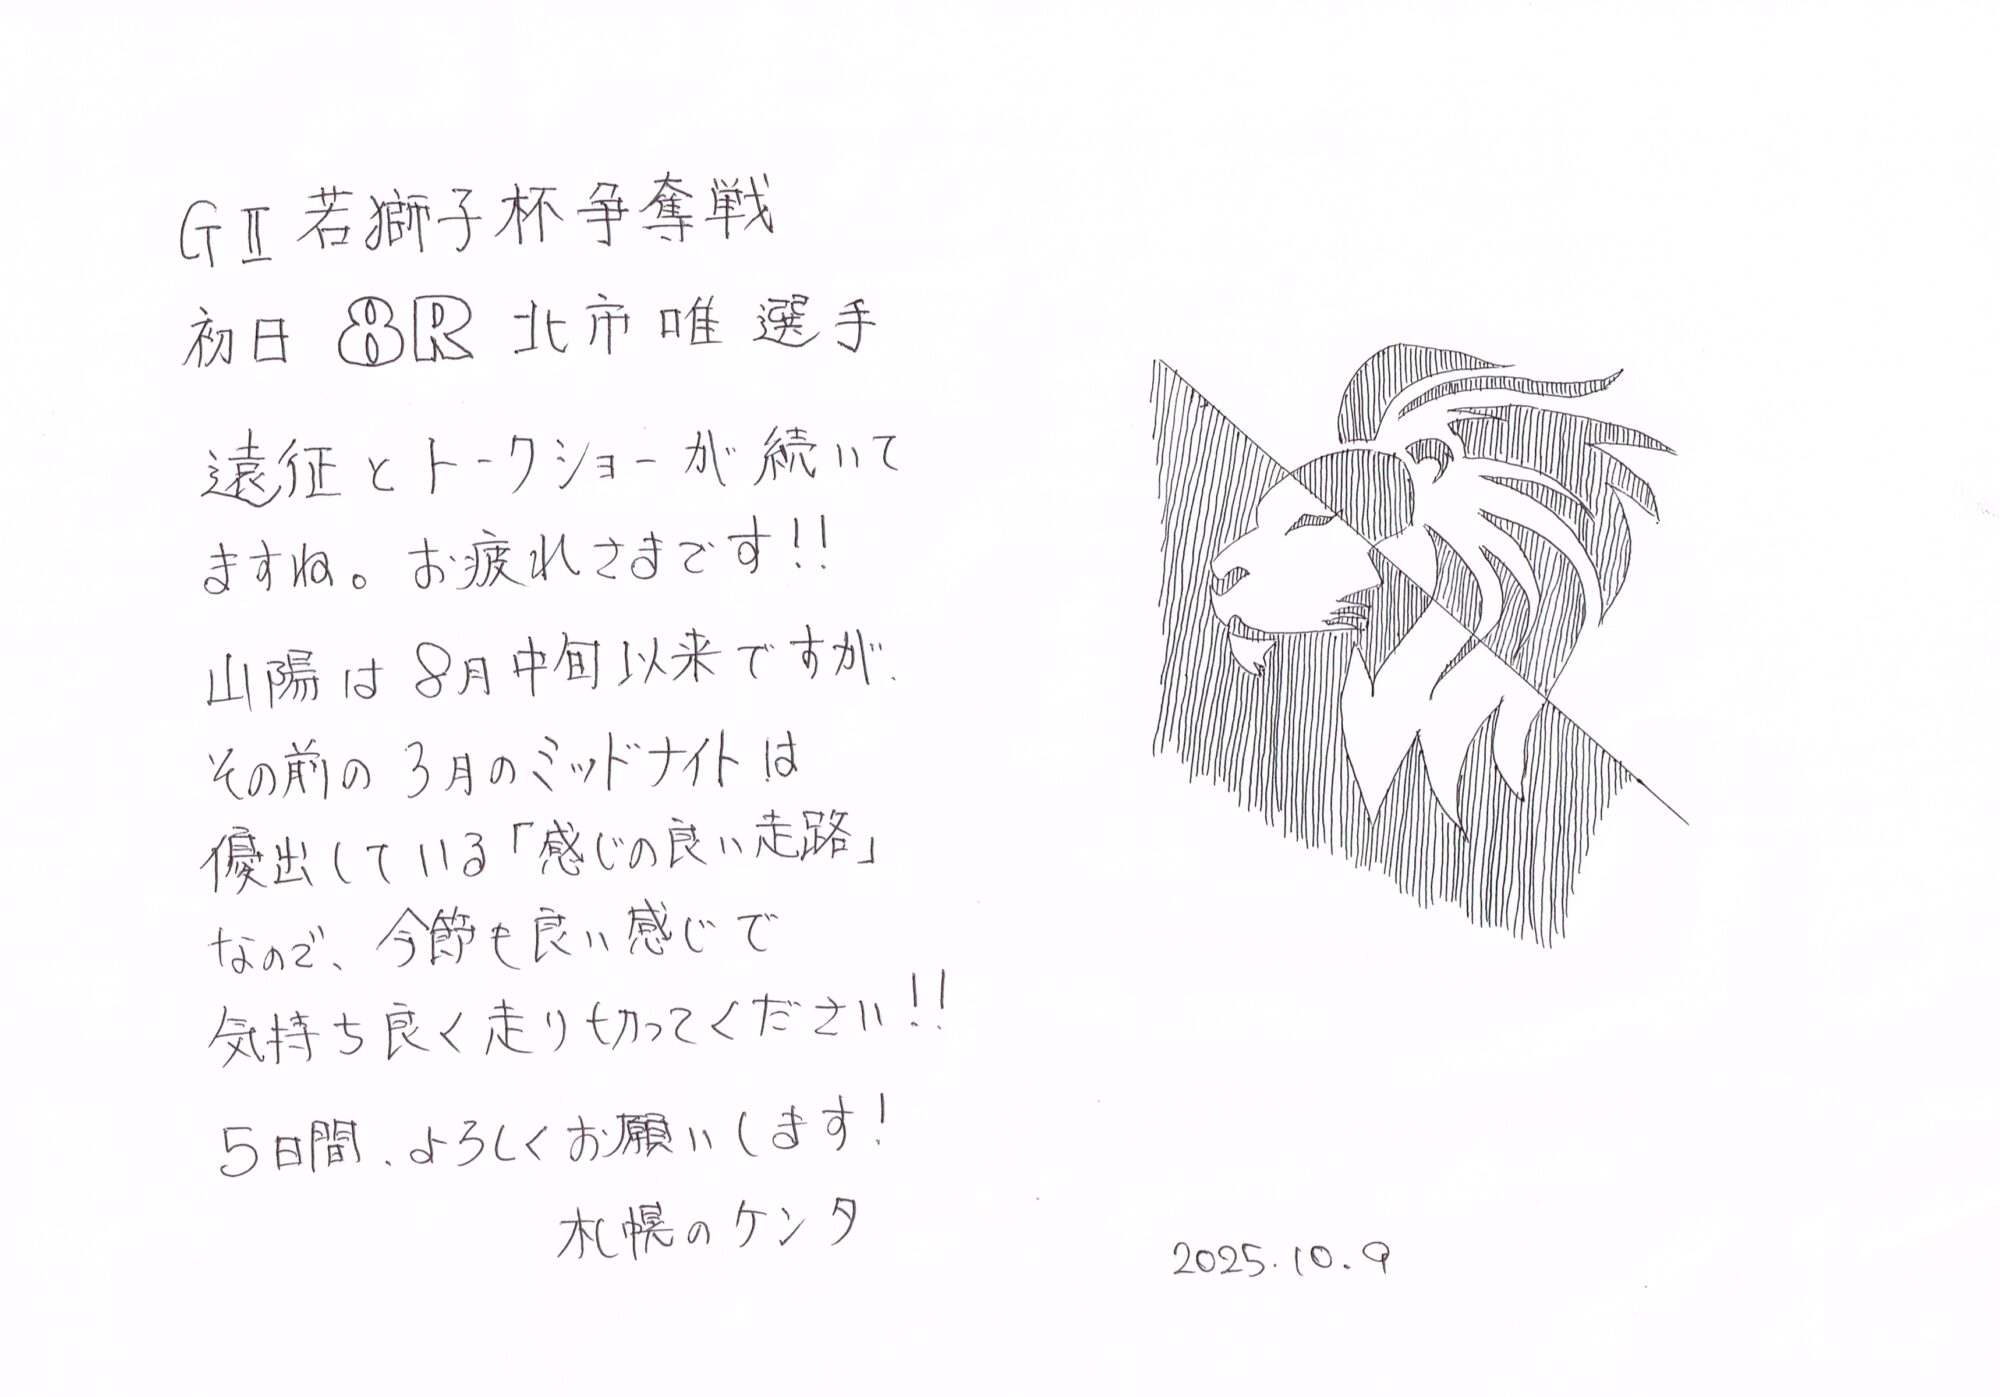 GⅡ 若獅子杯争奪戦
初日 8R 北市唯選手
遠征とトークショーが続いて
ますね。お疲れさまです!!
山陽は8月中旬以来ですが、
その前の3月のミッドナイトは
優出している「感じの良い走路」
なので、今節も良い感じで
気持ち良く走り切ってください!!
5日間、よろしくお願いします!
札幌のケンタ
2025.10.9